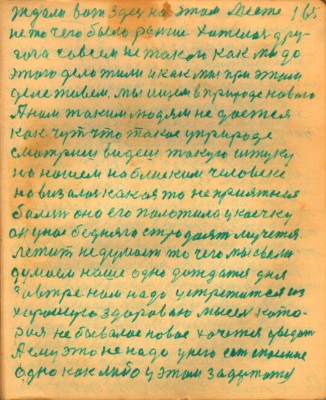 ждали вот здесь на этом месте 165
не то чего было раньше хотелося дру-
гога совсем не такого как мы до
этого дело жили и как мы при этом
деле живем. мы ищем в природе нового
А нам таким людям не дается
как чут что такое у природе
смотриш видеш такую штуку
на нашем на близким человеке
навязалася какая то неприятная
болезнь оно его положила у коечку
он у нас бедняга страдает мучется
лежит не думает то чего мы свели
думаем наше одно дождатся дня
Завтре нам надо устретится из
хорошую здоровою мысля кото-
рая не бывалое новое хочется увидать
А ему это не надо у него сот
одно как либо у этом задумат